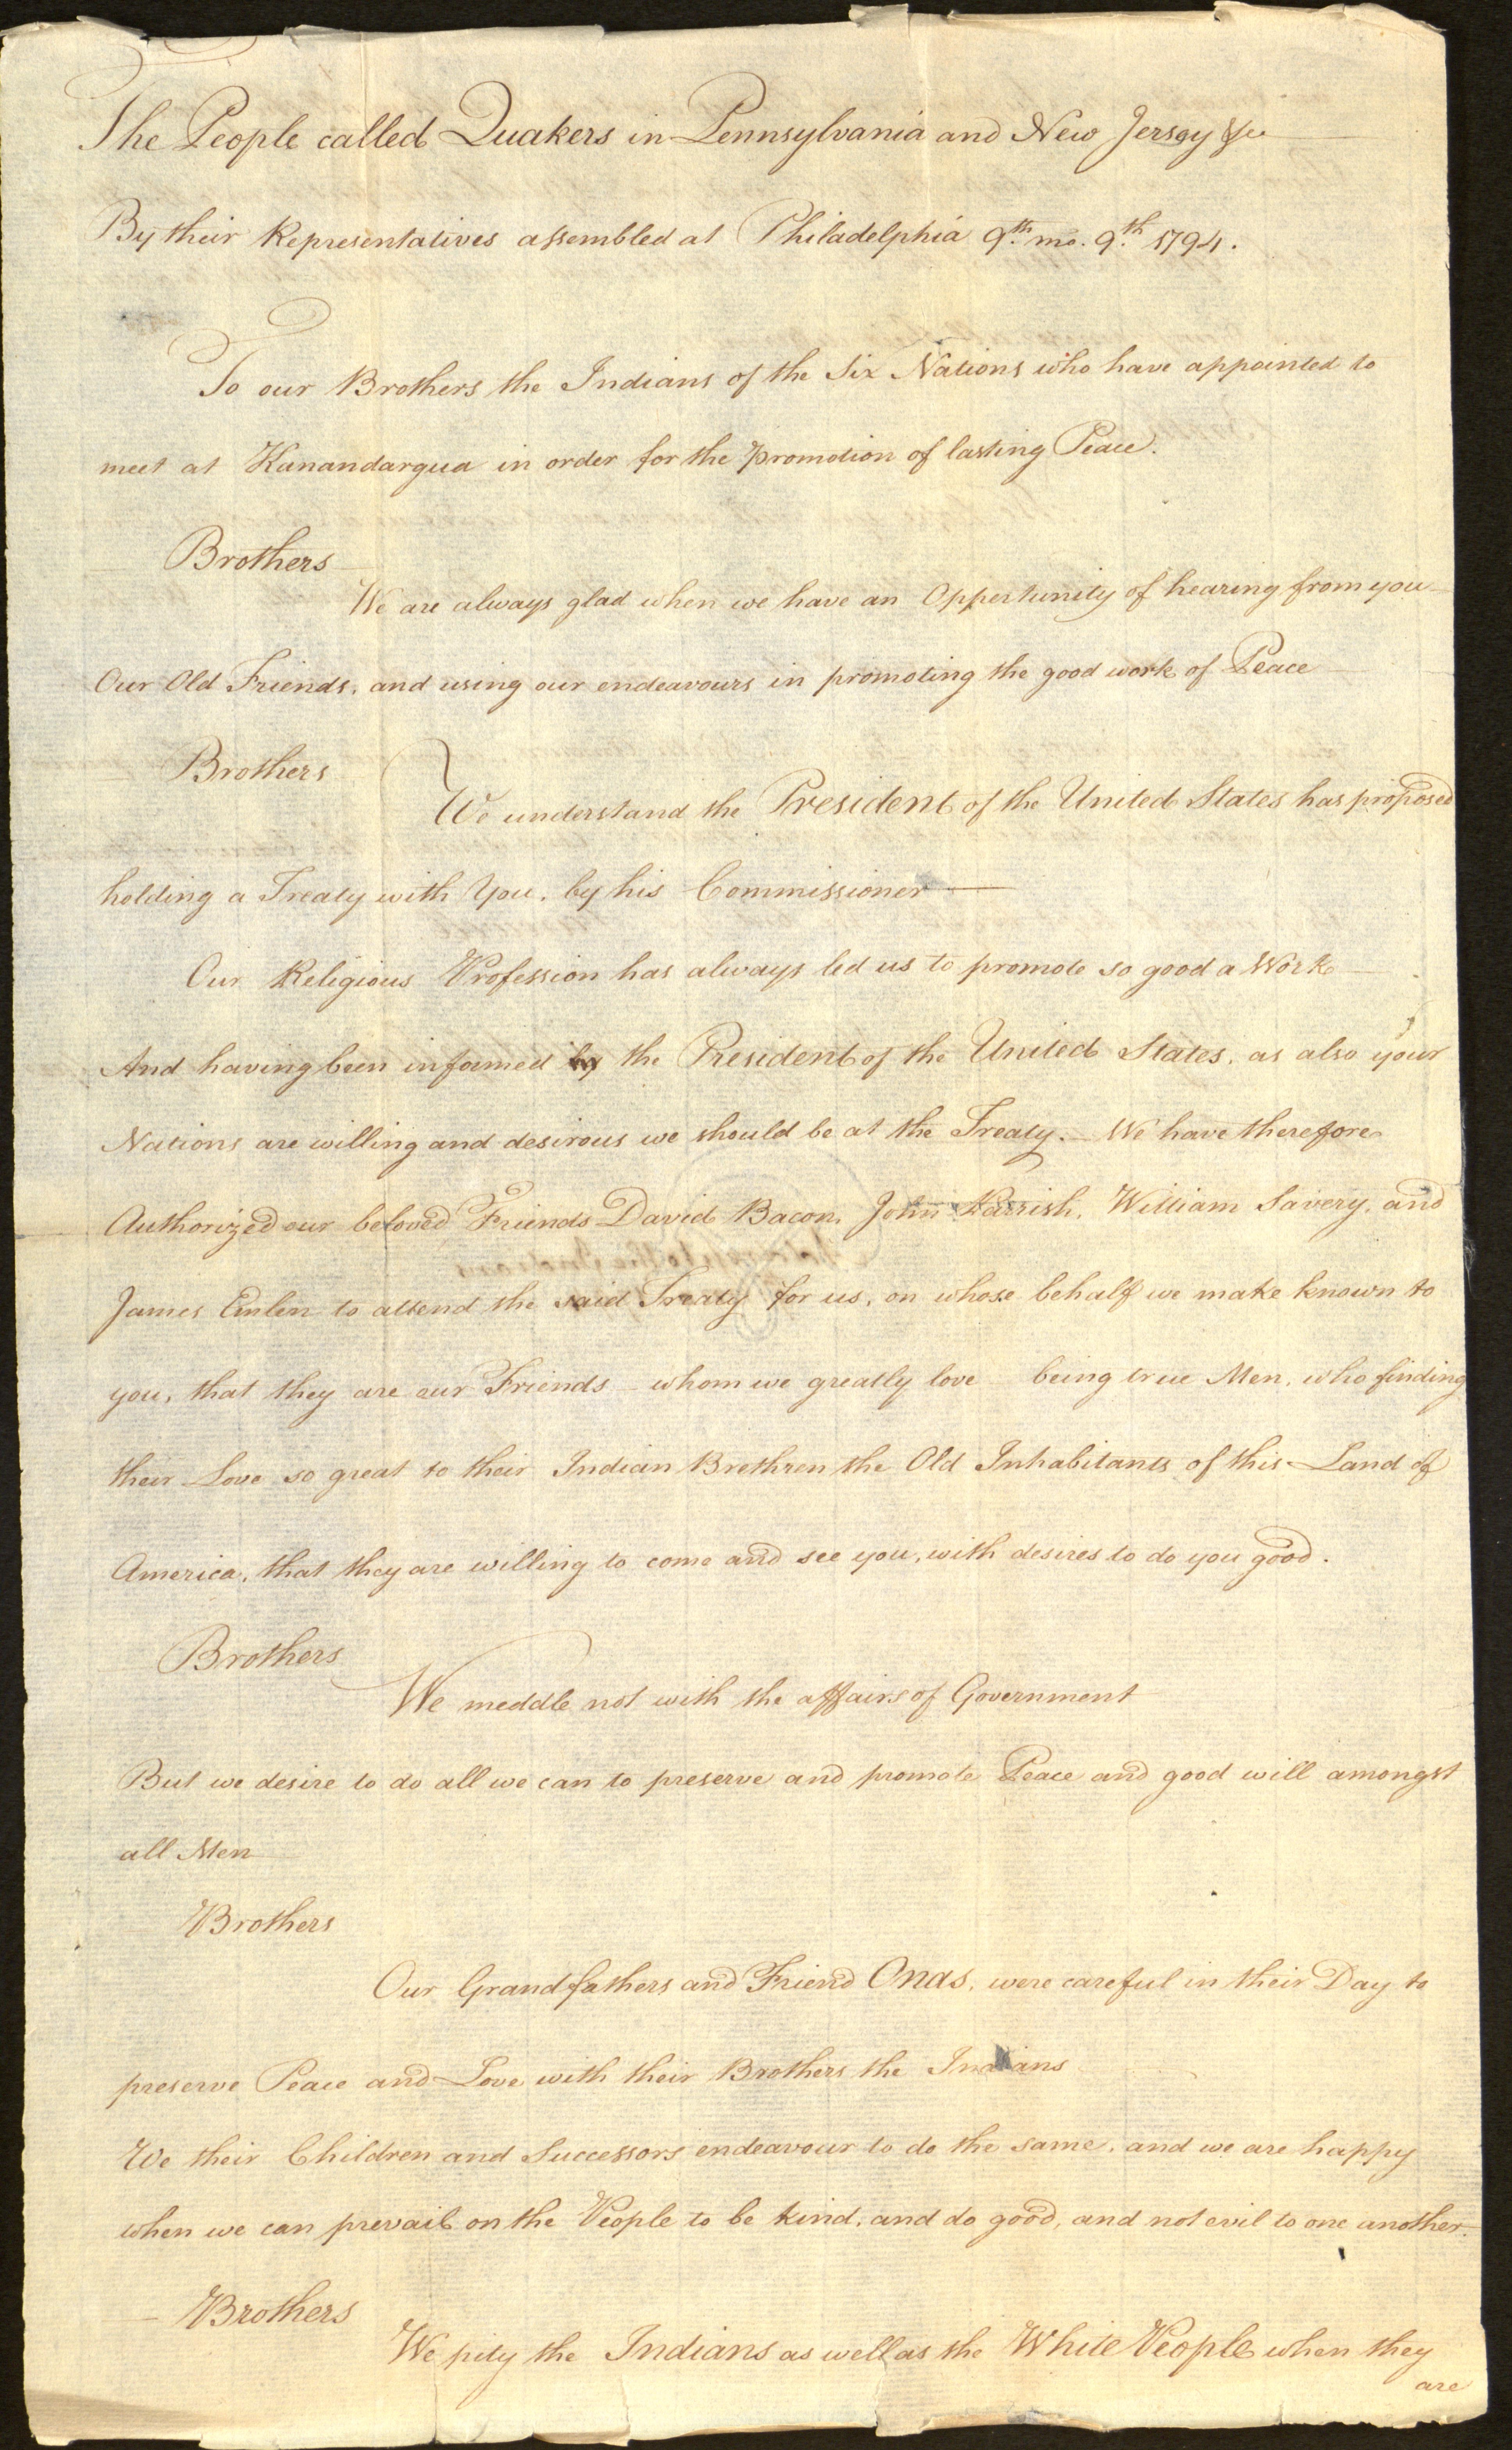 The People called Quakers in Pennsylvania and New Jersey &c
By their Representatives assembled at Philadelphia 9th. mo. 9th. 1794.
To our Brothers the Indians of the Six Nations who have appointed to
meet at Kanandargua in order for the promotion of lasting Peace.
Brothers
We are always glad when we have an Oppertunity of hearing from you
Our Old Friends, and using our endeavours in promoting the good work of Peace
Brothers
We understand the President of the United States has proposed
holding a Treaty with You, by his Commissioner
Our Religious Profession has always led us to promote so good a Work
And having been informed by the President of the United States, as also your
Nations are willing and desirous we should be at the Treaty. We have therefore
Authorized our beloved Friends David Bacon, John Parrish, William Savery, and
James Emlen to attend the said Treaty for us, on whose behalf we make known to
you, that they are our Friends whom we greatly love being true Men, who finding
their Love so great to their Indian Brethren the Old Inhabitants of this Land of
America, that they are willing to come and see you, with desires to do you good.
Brothers
We meddle not with the affairs of Government
But we desire to do all we can to preserve and promote Peace and good will amongst
all Men
Brothers
Our Grandfathers and Friend Onas, were careful in their Day to
preserve Peace and Love with their Brothers the Indians
We their Children and Successors endeavour to do the same, and we are happy
when we can prevail on the People to be kind, and do good, and not evil to one another.
Brothers
We pity the Indians as well as the White People when they
are